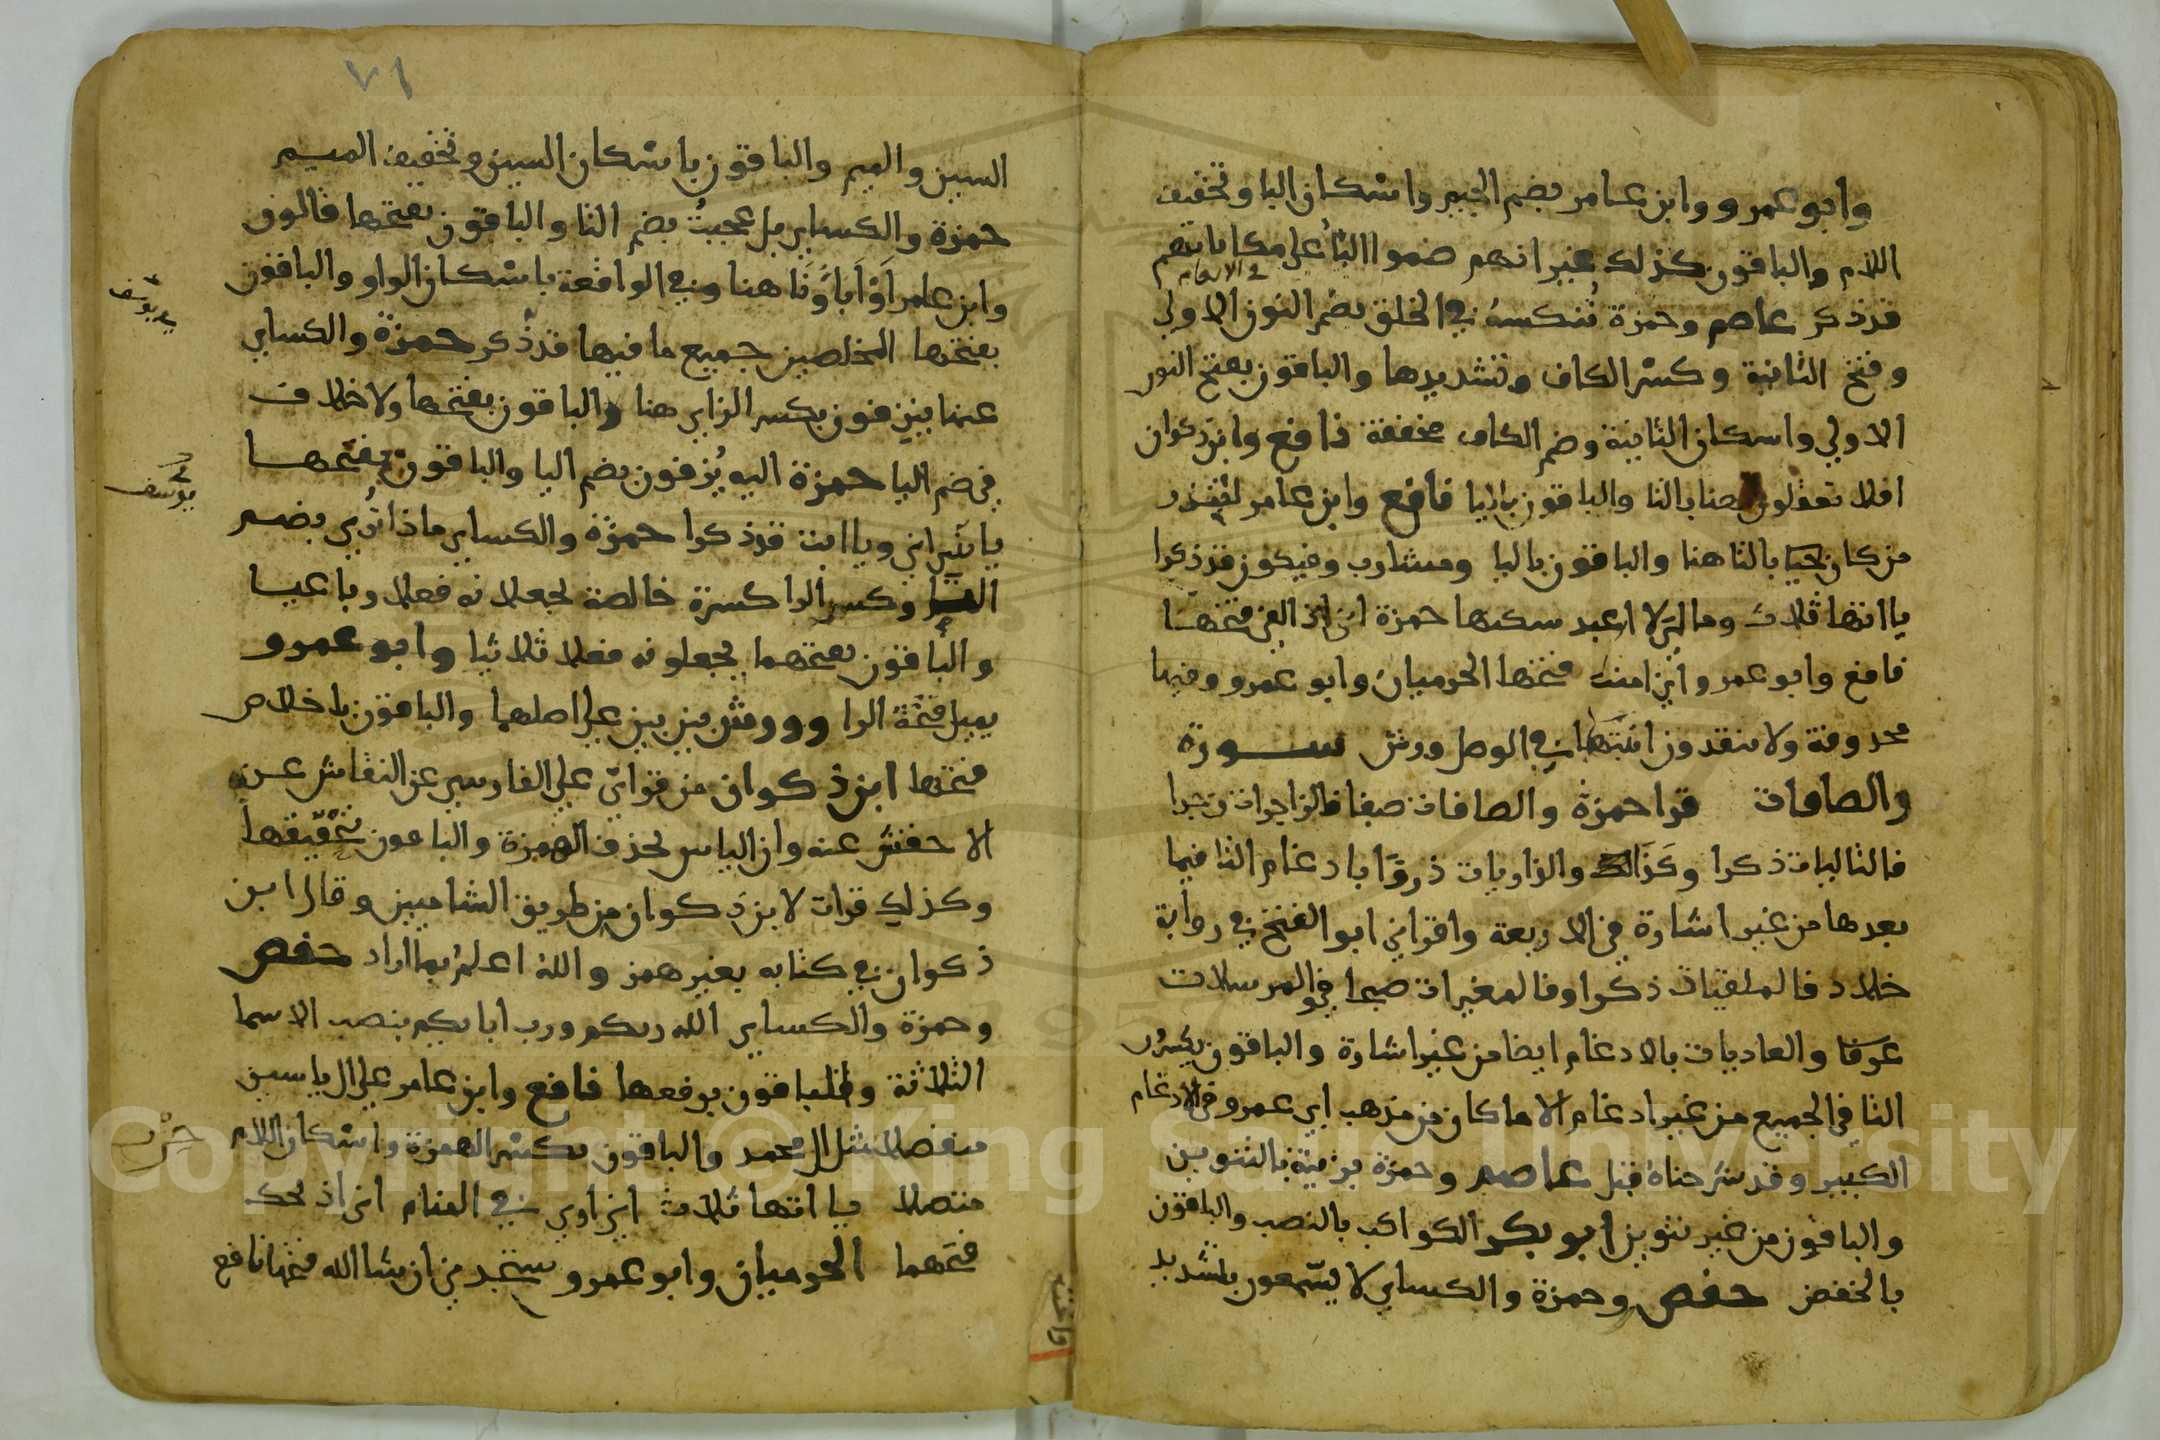 وابو عمرو وابن عامر بضم الجيم واسكان البا وتخفيف
اللام والباقون كذلك غير انهم ضموا البا على مكاناتهم
في الانعام
قد ذكر عاصم وحمزة ننكسه في الخلق بضم النون الاولي
وفتح الثانية وكسر الكاف وتشديدها والباقون بفتح النون
الاولي واسكان الثانية وضم الكاف مخففة نافع وابن ذكوان
افلا تعقلون هنا بالتا والباقون باليا نافع وابن عامر لتنذر
من كان حيا بالتا هنا والباقون باليا ومشارب وفيكون قد ذكرا
ياانها ثلاث ومالي لا اعبد سكنها حمزة اني اذا لفي فتحها
نافع وابو عمرو اني امنت فتحها الحرميان وابو عمرو وفيها
محذوفة ولا ينقذون اثبتها في الوصل ورش سورة
والصافات قرا حمزة والصافات صفا فالزاجرات زجرا
فالتاليات ذكرا وكذلك والذاريات ذروا بادغام التا فيما
بعدها من غير اشارة في الاربعة واقراني ابو الفتح في رواية
خلاد فالملقيات ذكرا وفالمغيرات صبحا في والمرسلات
عرفا والعاديات بالادغام ايضا من غير اشارة والباقون يكسرون
التا في الجميع من غير ادغام الا ما كان من مذهب ابي عمرو في الادغام
الكبير وقد شرحناه قبل عاصم وحمزة بزينة بالتنوين
والباقون من غير تنوين ابو بكر الكواكب بالنصب والباقون
بالخفض حفص وحمزة والكساي لا يسمعون بتشديد
وافقه
٧١
السين والميم والباقون باسكان السين وتخفيف الميم
حمزة والكساي بل عجبت بضم التا والباقون بفتحها قالون
وابن عامر اَوْ اَباؤنا هنا وفي الواقعة باسكان الواو والباقون
بفتحها المخلصين جميع ما فيها قد ذكر حمزة والكساي
عنها ينزفون بكسر الزاي هنا والباقون بفتحها ولا خلاف
في ضم اليا حمزة اليه يُزفون بضم اليا والباقون بفتحها
يا بني اني ويا ابت قد ذكرا حمزة والكساي ماذا تري بضم
التا وكسر الرا كسرة خالصة يجعلانه فعلا رباعيا
والباقون بفتحهما يجعلونه فعلا ثلاثيا وابو عمرو
يميل فتحة الرا وورش بين بين علي اصلهما والباقون باخلاص
فتحها ابن ذكوان من قراتي علي الفارسي عن النقاش عن
الاخفش عنه وان الياس بحذف الهمزة والباقون بتحقيقها
وكذلك قرات لابن ذكوان من طريق الشاميين وقال ابن
ذكوان في كتابه بغير همز والله اعلم بما اراد حفص
وحمزة والكساي الله ربكم ورب اباىكم بنصب الاسما
الثلاثة والباقون برفعها نافع وابن عامر علي ال ياسين
منفصلا مثل ال محمد والباقون بكسر الهمزة واسكان اللام
متصلا ياانها ثلاث اني اري في المنام اني اذبحك
فتحهما الحرميان وابو عمرو ستجدني ان شا الله فتحها نافع
يوسف
حزب
Copyright © King Saud University
1957